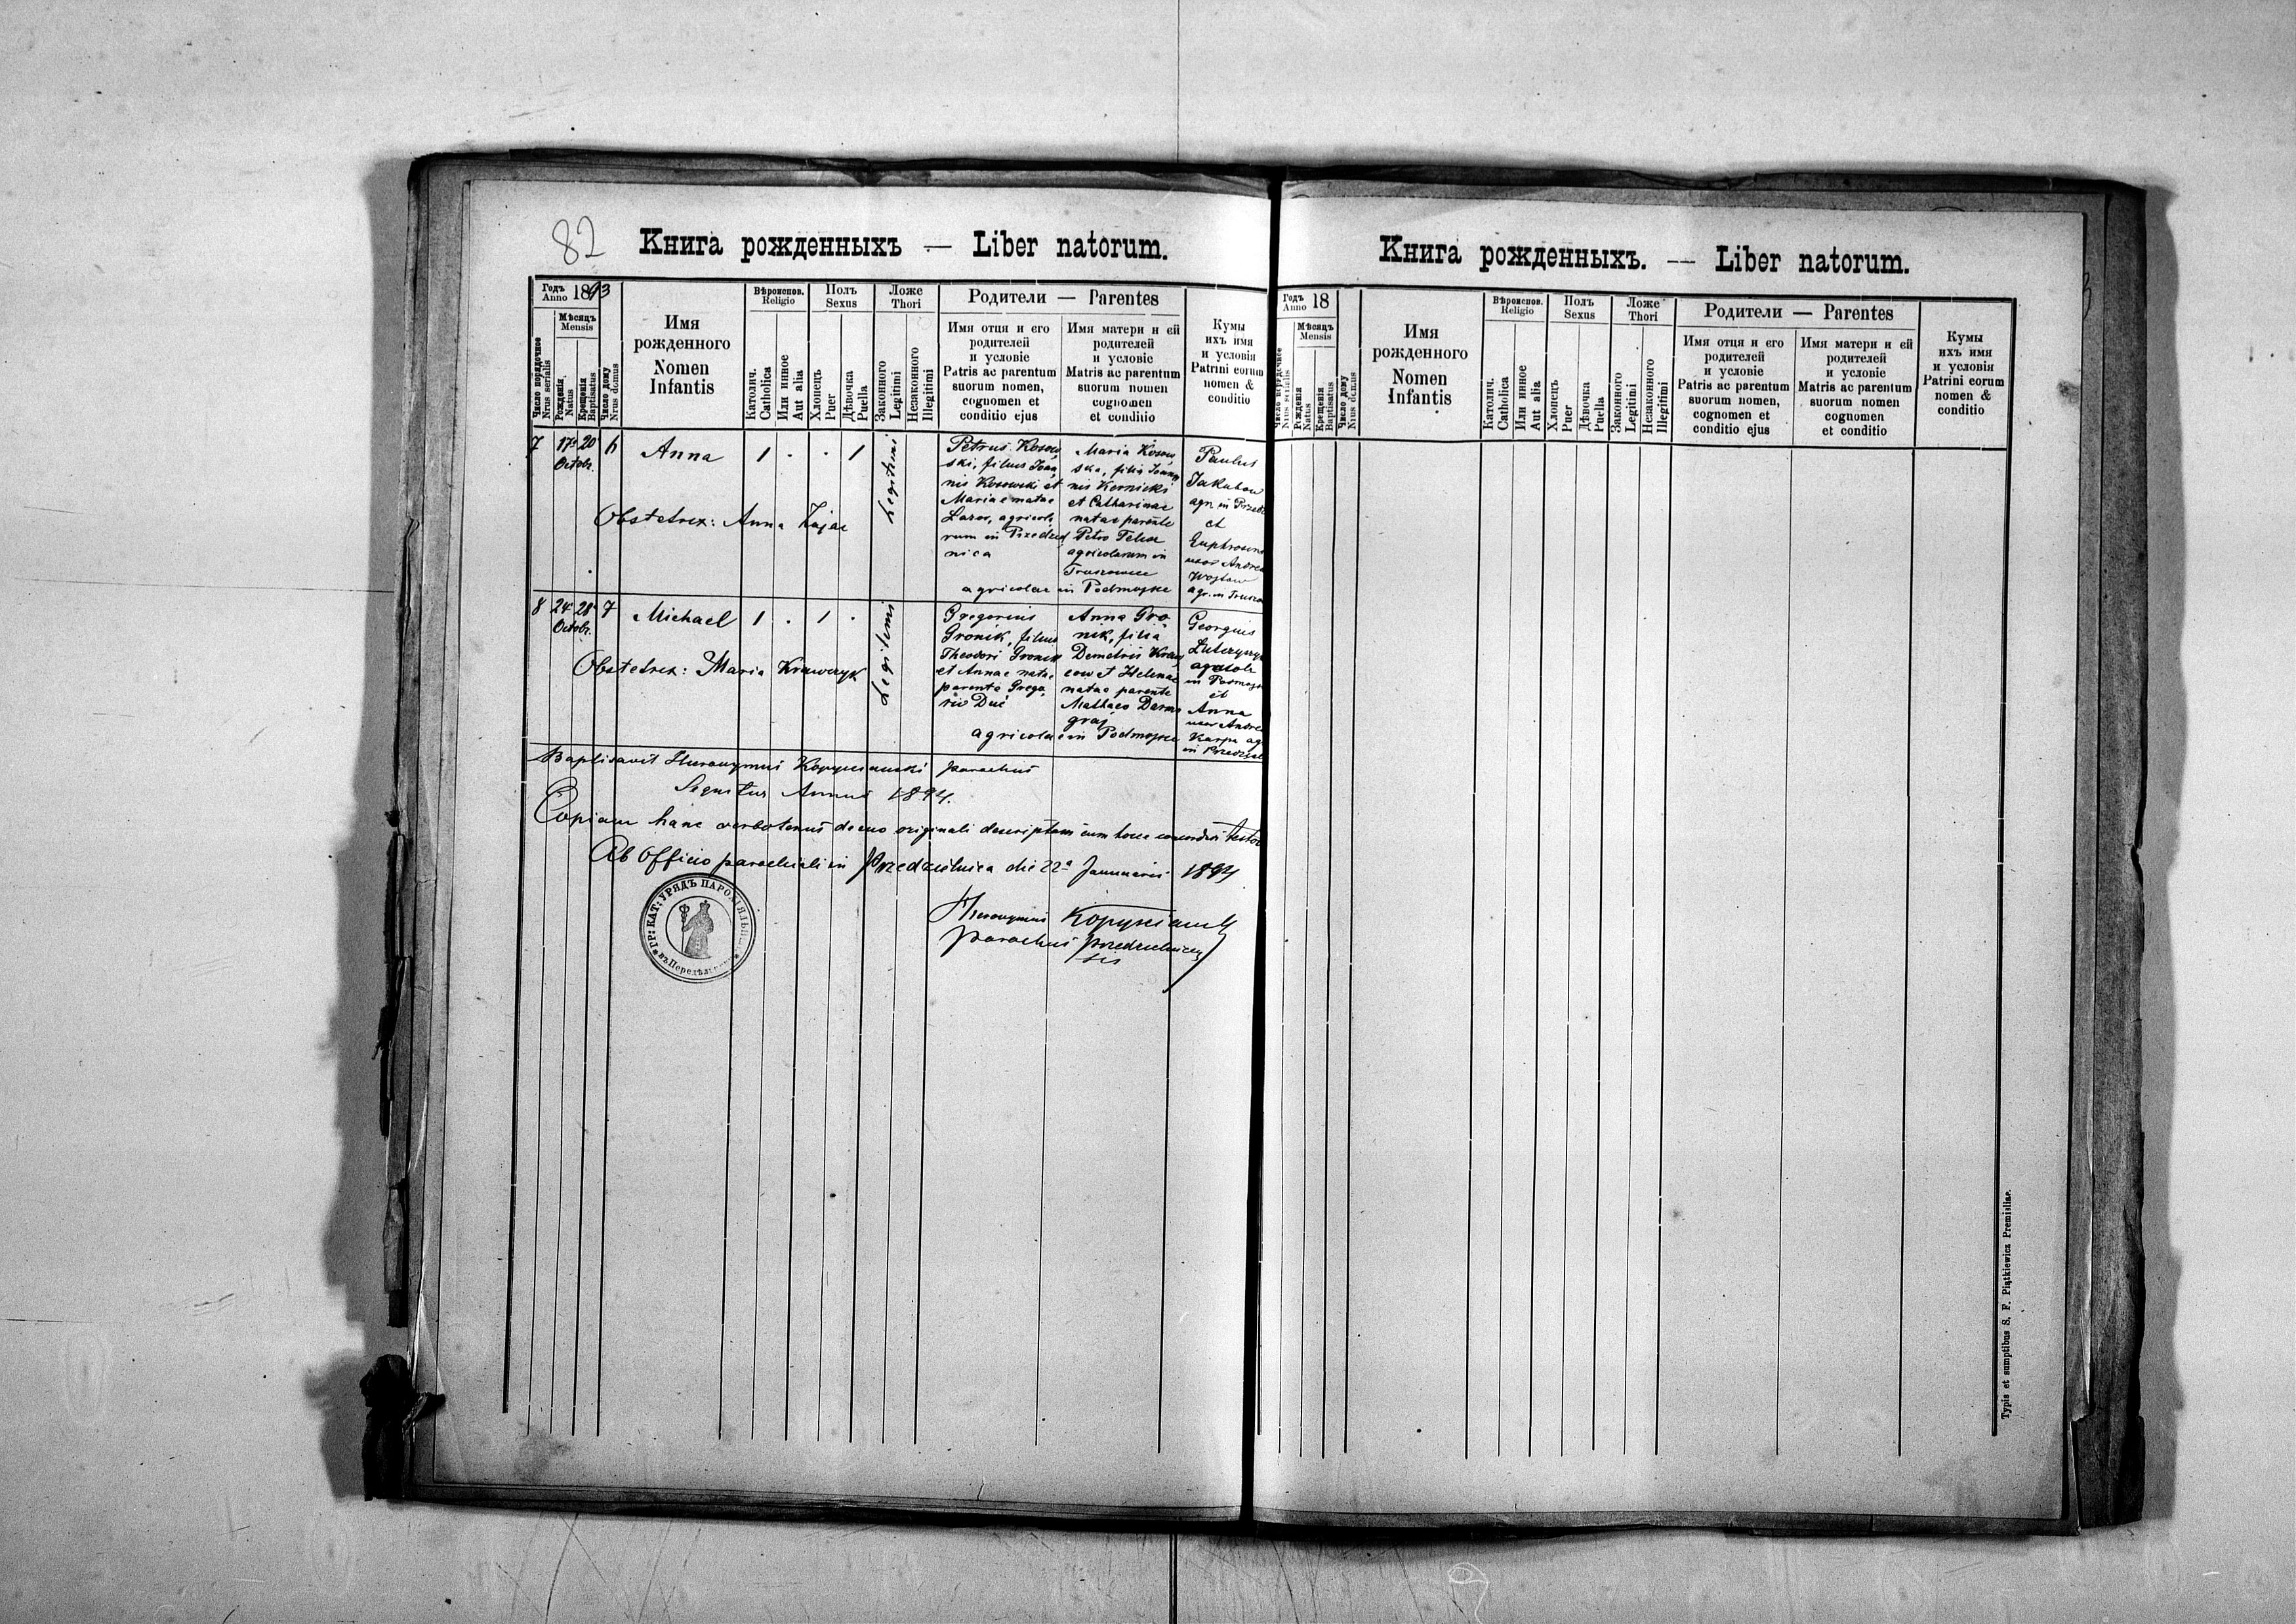 82
Книга рожденныхъ — Liber natorum.
Годъ
Anno 1893
Мѣсяцъ
Mensis
Число порядочное
Nrus serialis
Рожденія
Natus
Крещенія
Baptisatus
Число дому
Nrus domus
Имя
рожденного
Nomen
Infantis
Вѣроиспов.
Religio
Католич.
Catholica
Или иное
Aut alia
Полъ
Sexus
Хлопецъ
Puer
Дѣвочка
Puella
Ложе
Thori
Законного
Legitimi
Незаконного
Illegitimi
Родители — Parentes
Имя отця и его
родителей
и условіе
Patris ac parentum
suorum nomen,
cognomen et
conditio ejus
Имя матери и ей
родителей
и условіе
Matris ac parentum
suorum nomen
cognomen
et conditio
Кумы
ихъ имя
и условія
Patrini eorum
nomen &
conditio
7 17 20 Octobr. Anna 1 · · 1 Legitimi
Petrus Kosow
ski, filius Joan
nis Kosowski et
Mariae natae
Lazor, agricola
rum in Przedziel
nica
Maria Kosow
ska, filia Joan
nis Kernicki
et Catharinae
natae parente
Petro
agricolarum in
Truszowice
agricolae in Podmojsce
Paulus
Jakubow
agr. in
et
uxor Andrea
agr. in
Obstetrex: Anna Zając
8 24 28 Octobr. 7 Michael 1 · 1 · Legitimi
Gregorius
Gronik, filius
Theodori Gronik
et Annae natae
parente Grego
rio Duć
Anna Gro
nik, filia
Demetrii
et Helenae
natae parente
Mathaeo
agricolae in Podmojsce
Georgius
agricola
in
et
Anna
uxor Andrea
Karpa ag
in
Obstetrex: Maria Krawczyk
Baptisavit Hieronymus Kopyscianski parochus
Sequitur Annus 1894.
Copiam hanc verbotenus de suo originali descriptam cum hocce concordari testor
Ab Officio parochiali in Przedzielnica die 22ª Januarii 1894
ГР: КАТ: УРЯДЪ ПАРОХІЯЛЬН
въ
Hieronymus
parochus Przedzielnicen
sis
Книга рожденныхъ. — Liber natorum.
Годъ
Anno 18
Мѣсяцъ
Mensis
Число порядочное
Nrus serialis
Рожденія
Natus
Крещенія
Baptisatus
Число дому
Nrus domus
Имя
рожденного
Nomen
Infantis
Вѣроиспов.
Religio
Католич.
Catholica
Или иное
Aut alia
Полъ
Sexus
Хлопецъ
Puer
Дѣвочка
Puella
Ложе
Thori
Законного
Legitimi
Незаконного
Illegitimi
Родители — Parentes
Имя отця и его
родителей
и условіе
Patris ac parentum
suorum nomen,
cognomen et
conditio ejus
Имя матери и ей
родителей
и условіе
Matris ac parentum
suorum nomen
cognomen
et conditio
Кумы
ихъ имя
и условія
Patrini eorum
nomen &
conditio
Typis et sumptibus S. F. Piątkiewicz Premisliae.